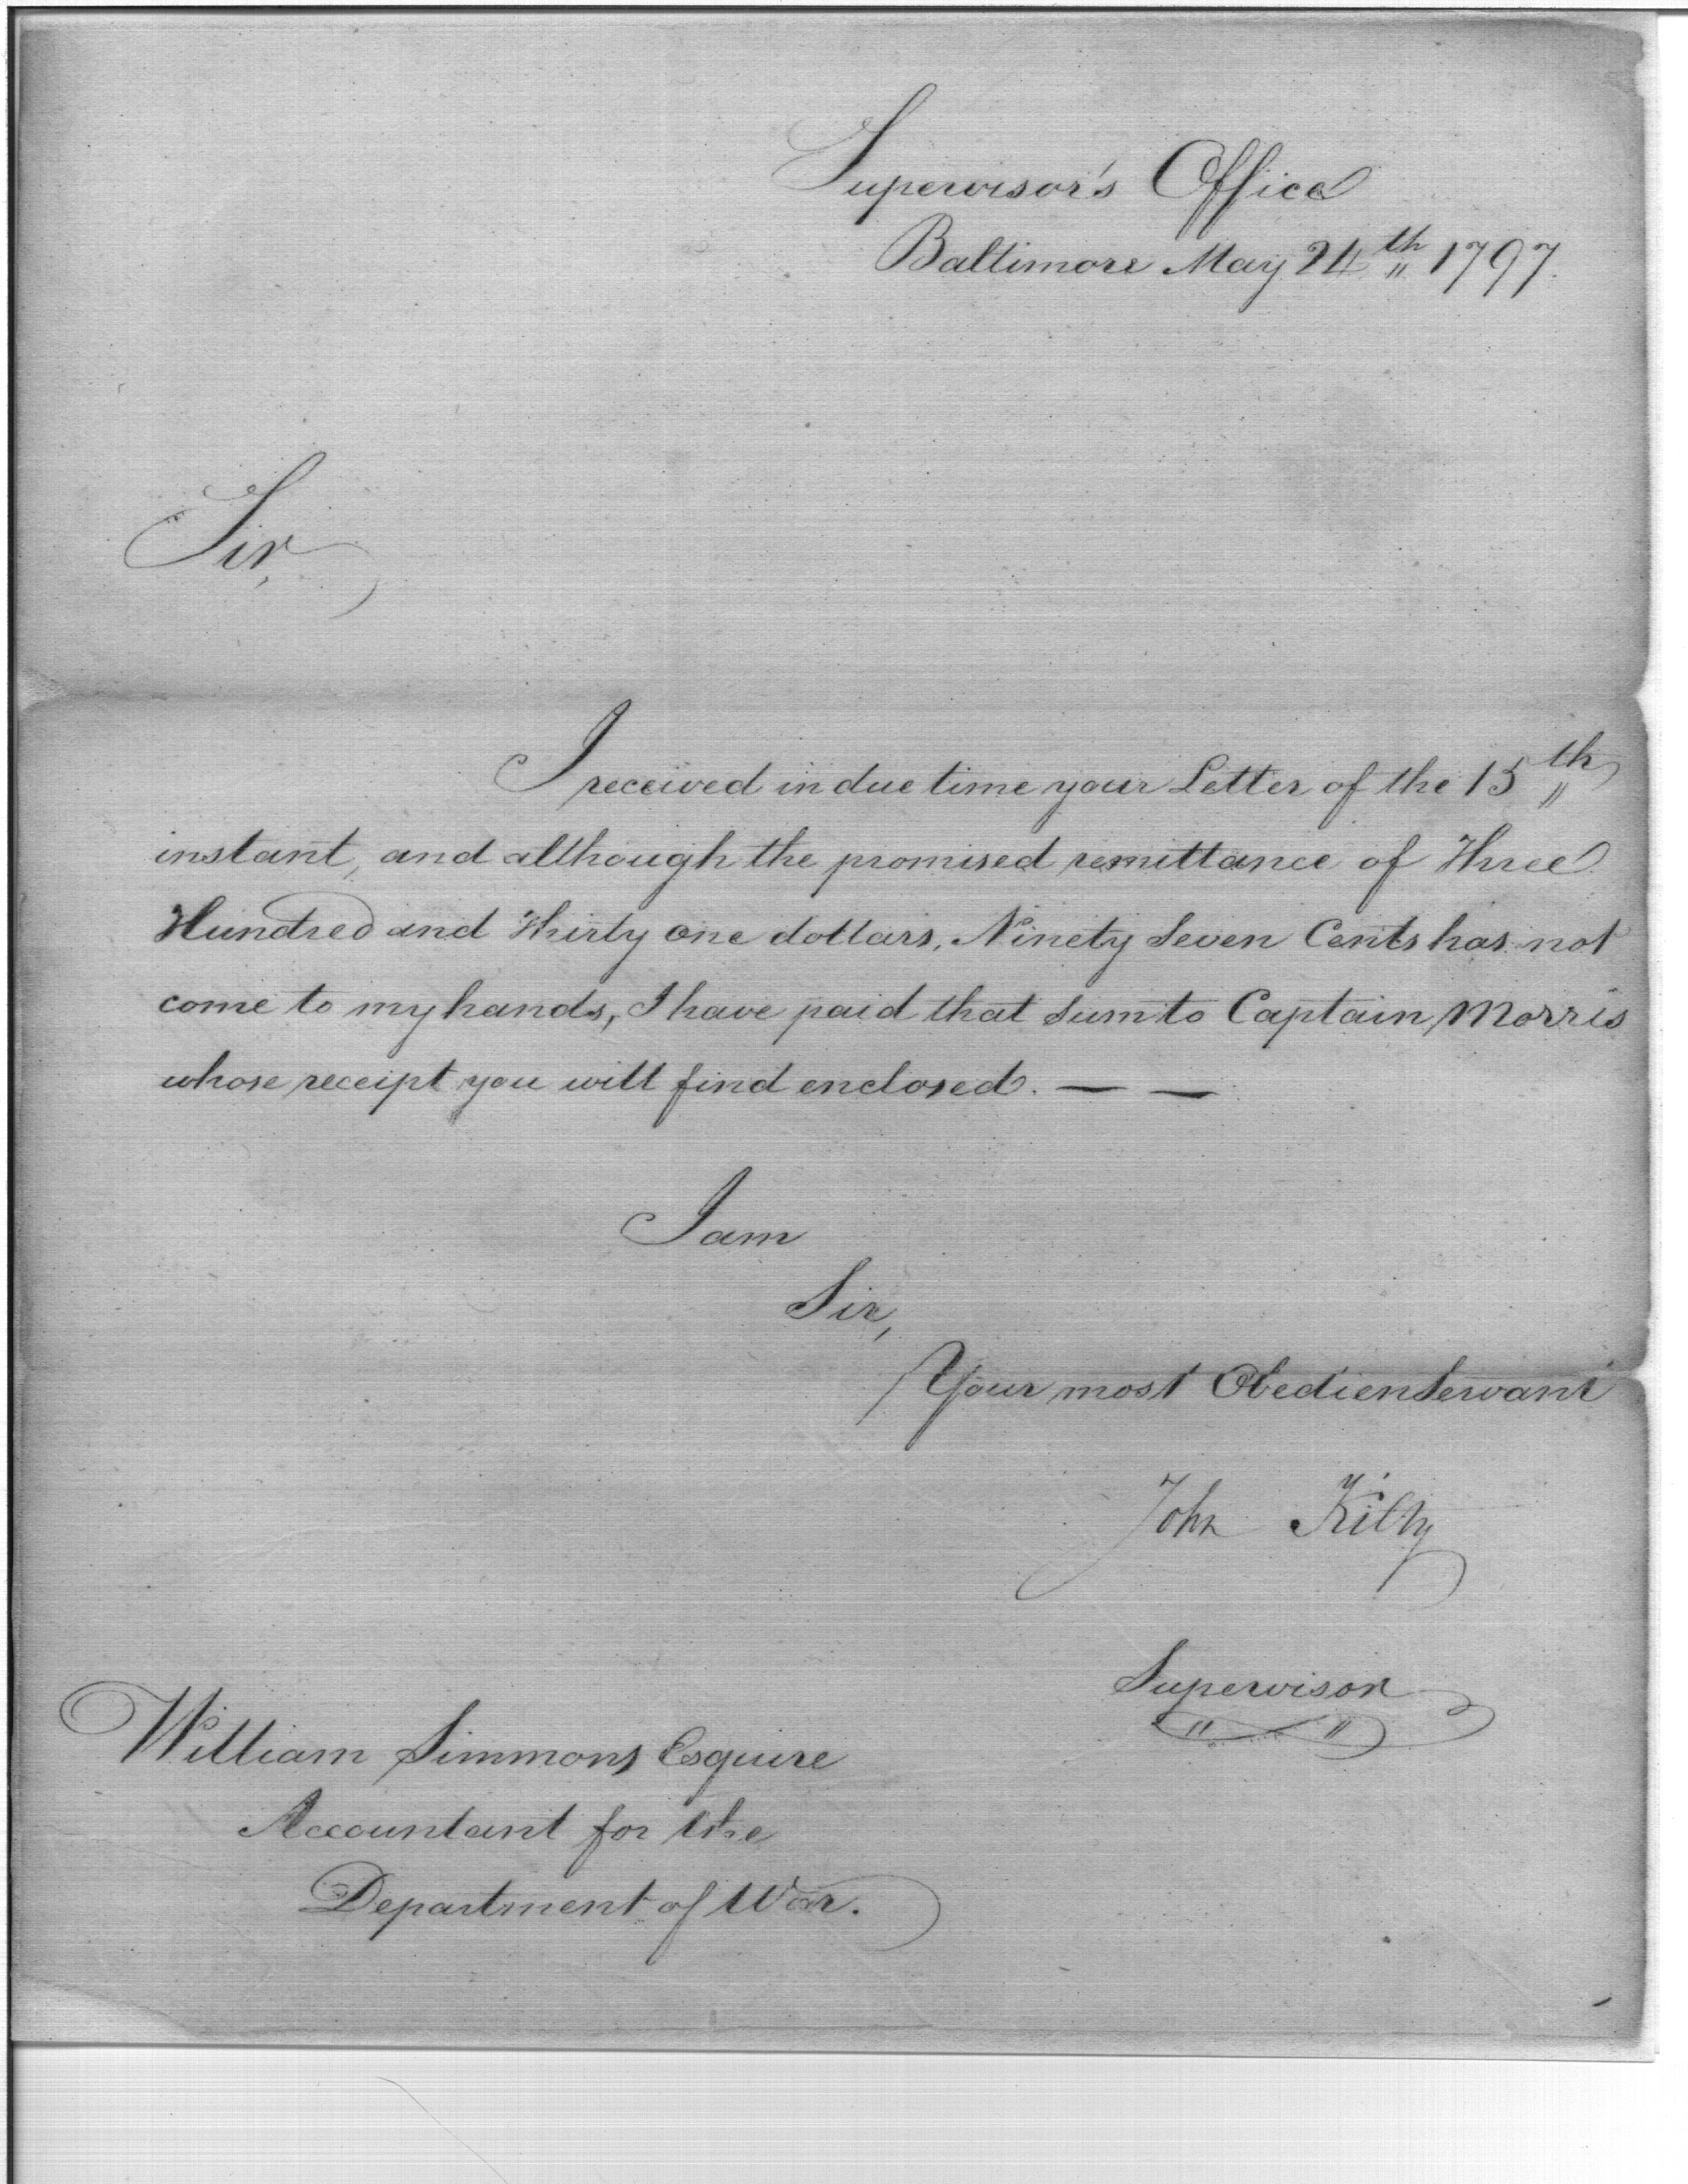 Supervisor's Office
Baltimore May 24th 1797.
Sir,
I received in due time your Letter of the 15th
instant, and although the promised remittance of Three
Hundred and Thirty one dollars, Ninety Seven Cents has not
come to my hands, I have paid that Sum to Captain Morris
whose receipt you will find enclosed. — —
I am
Sir,
Your most Obedien Servant
John Kilty
Supervisor
William Simmons Esquire
Accountant for the
Department of War.